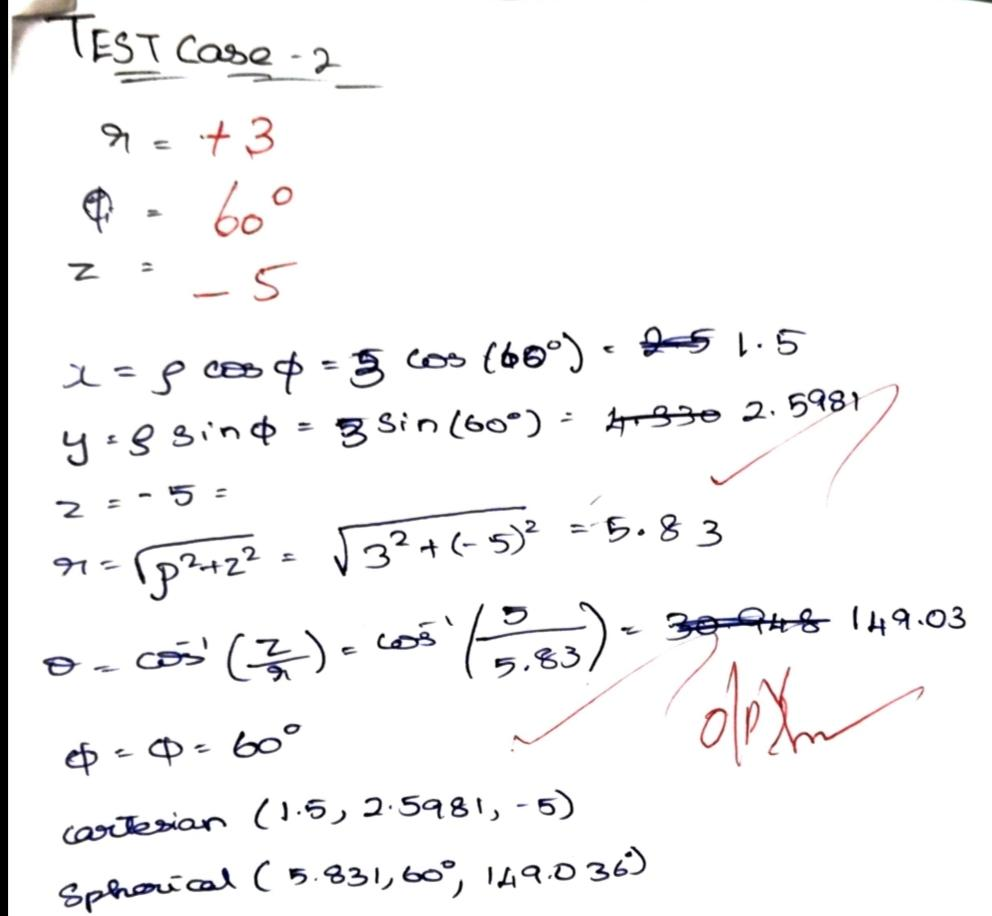 TEST Case - 2
r = +3
Φ = 60°
z = -5
x = ρ cos ϕ = 3 cos (60°) = 2.5 1.5
y = ρ sin ϕ = 3 sin (60°) = 4.330 2.5981
z = -5 =
r = √(ρ²+z²) = √(3²+(-5)²) = 5.83
θ = cos⁻¹ (z/r) = cos⁻¹ (5/5.83) = 30.948 149.03
ϕ = Φ = 60°
cartesian (1.5, 2.5981, -5)
Spherical (5.831, 60°, 149.036°)